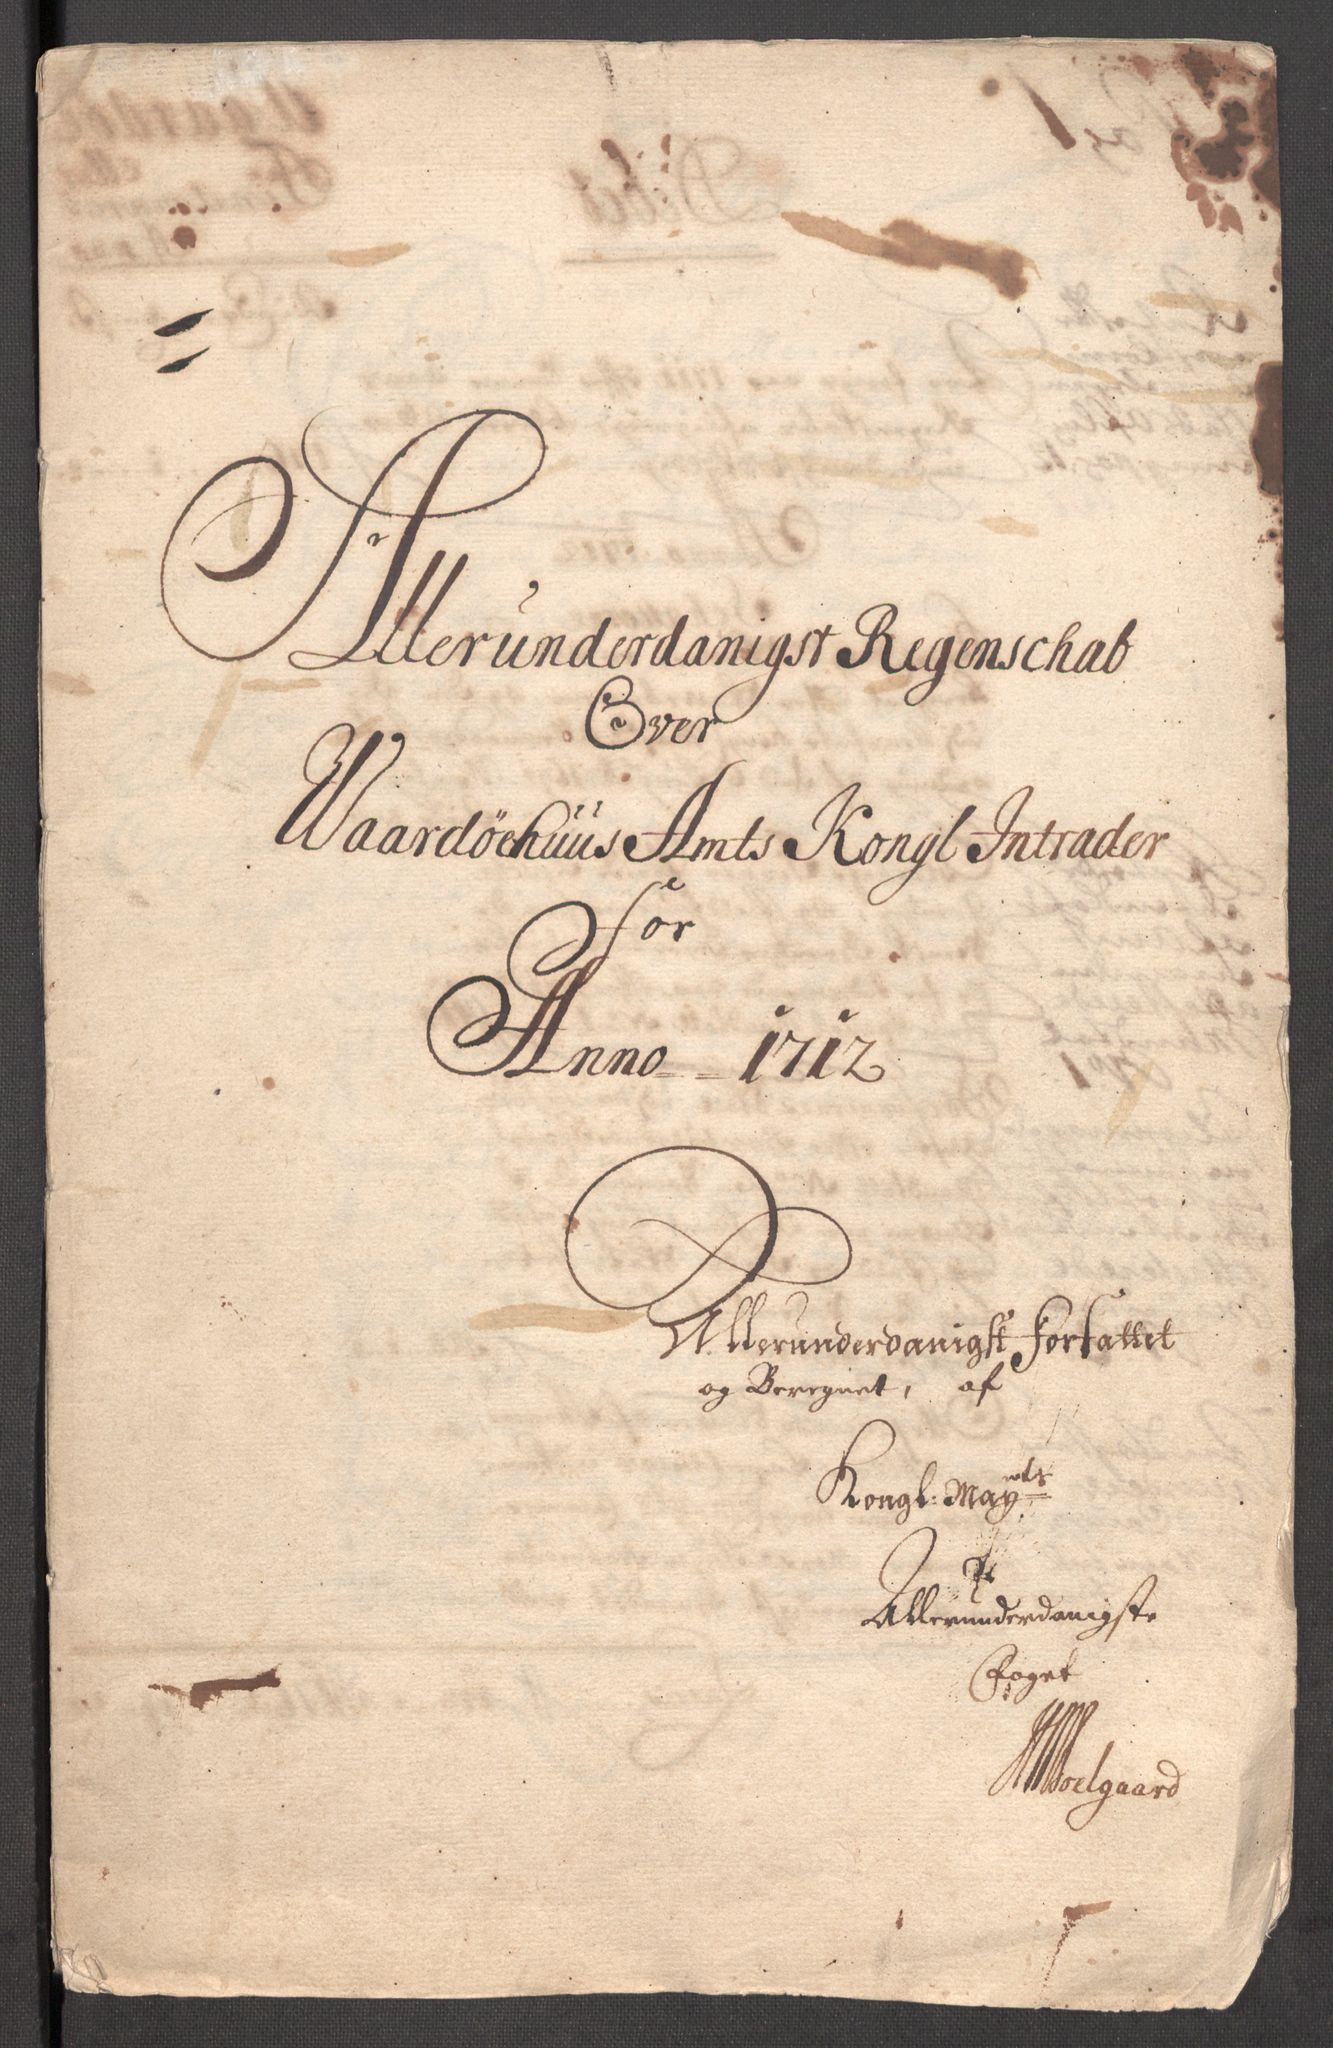 Allerunderdanigst Regenschab
Over
Waardöehuus Amts Kongl Intrader
for
Anno 1712
Allerunderdanigst forfattet
og Beregnet, af
Kongl: May:ts
Allerunderdanigste
Foget
Soelgaard